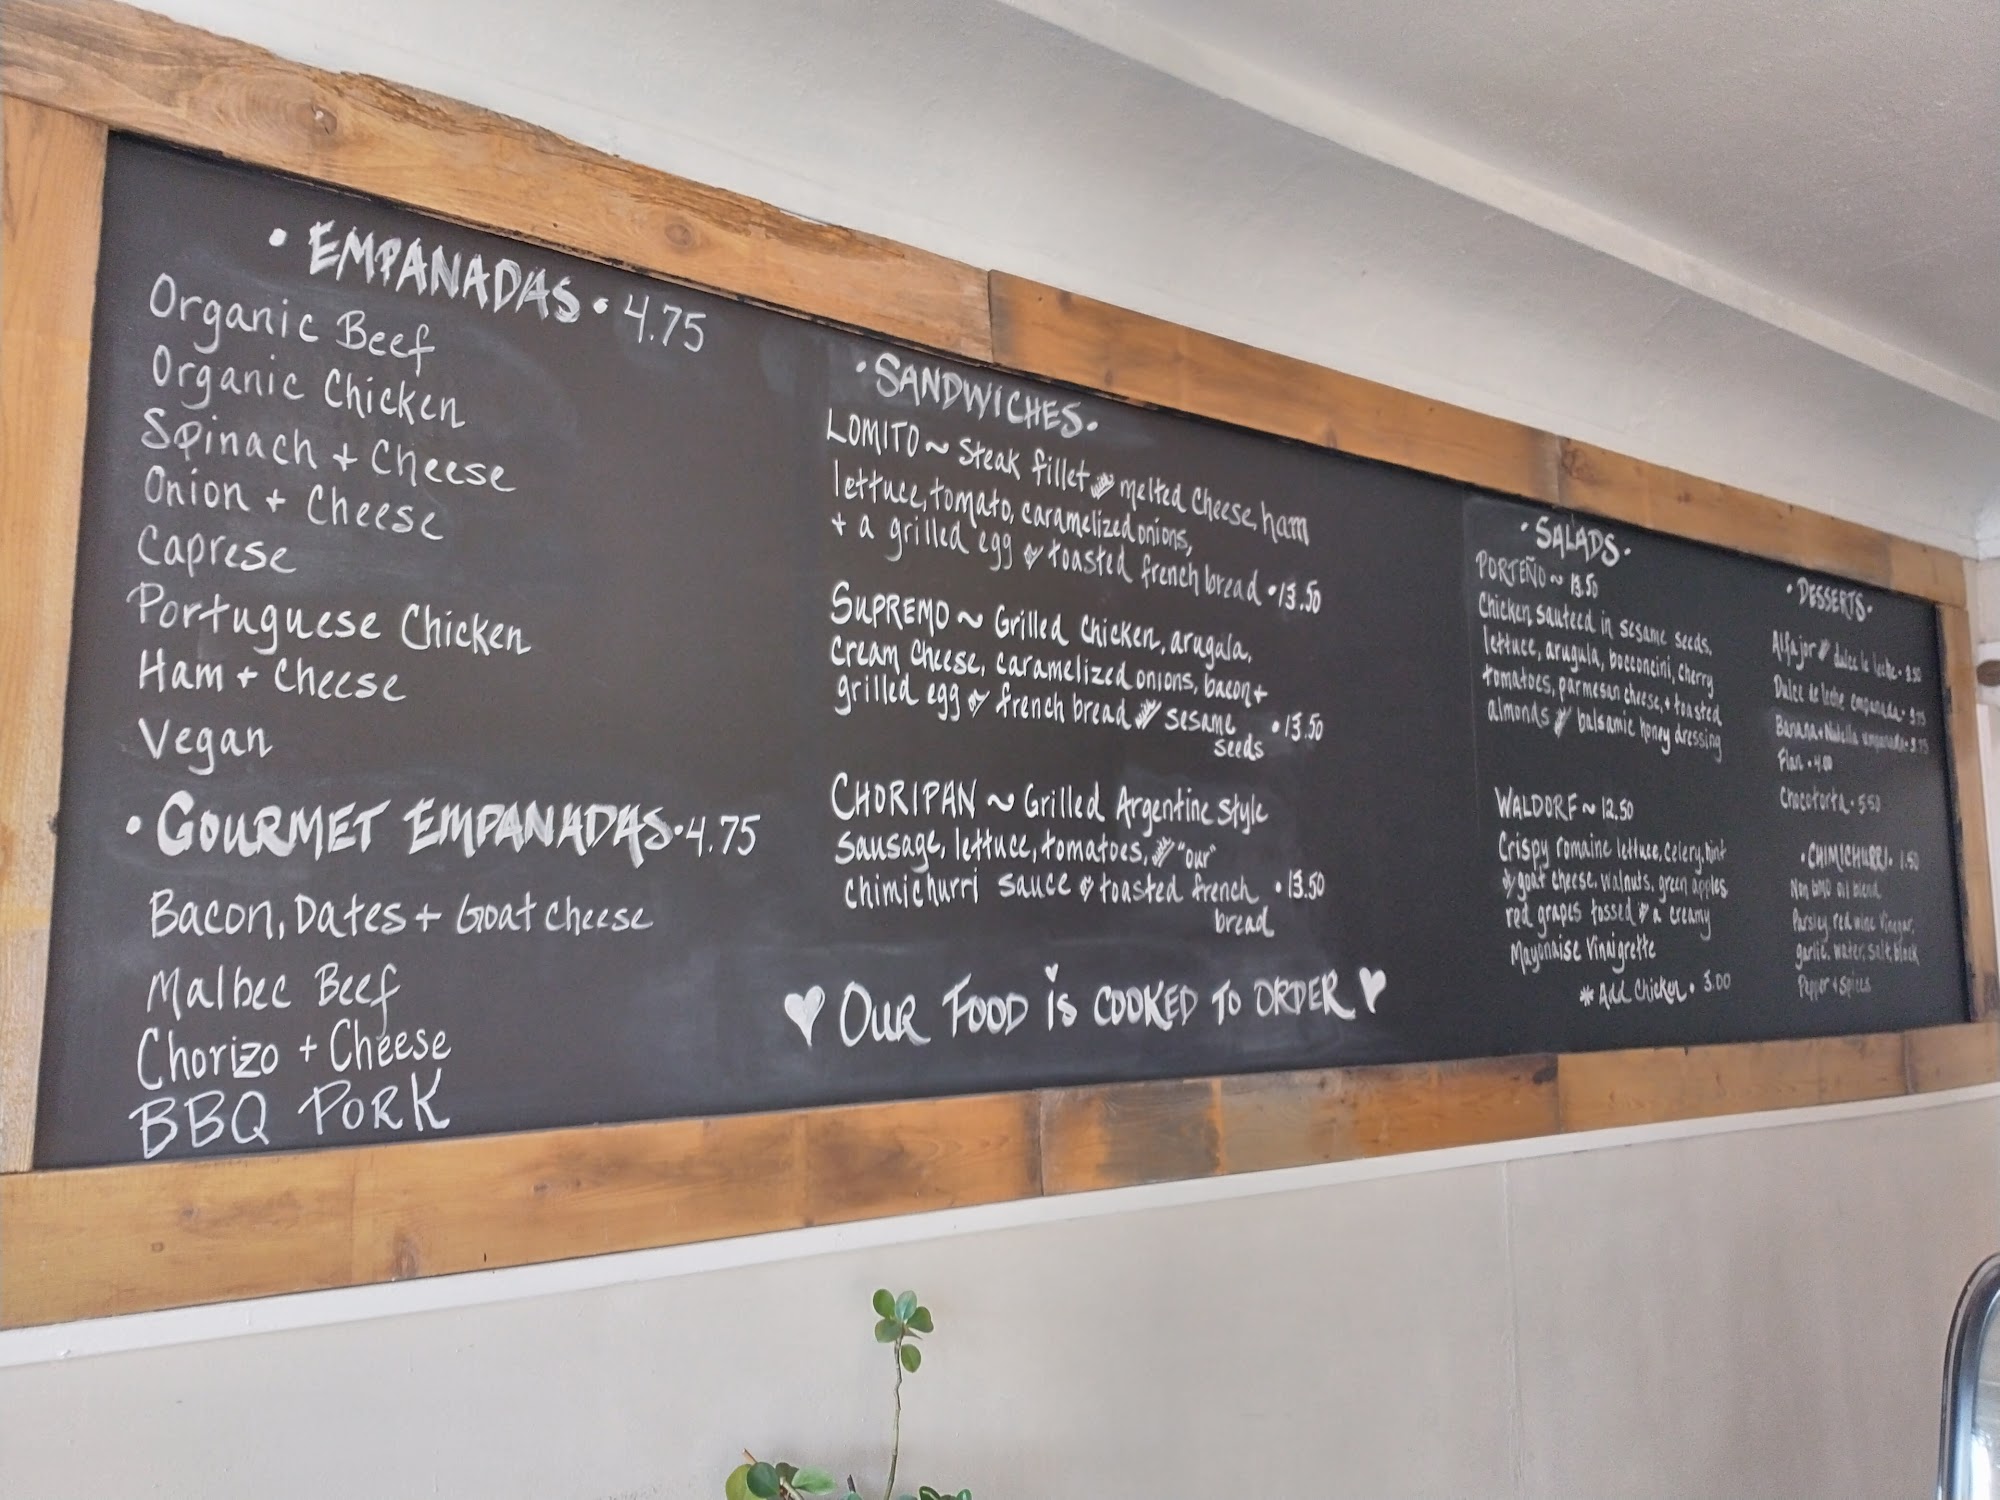 • EMPANADAS • 4.75
Organic Beef
Organic Chicken
Spinach + Cheese
Onion + Cheese
Caprese
Portuguese Chicken
Ham + Cheese
Vegan
• GOURMET EMPANADAS • 4.75
Bacon, Dates + Goat cheese
Malbec Beef
Chorizo + Cheese
BBQ PORK
• SANDWICHES •
LOMITO ~ Steak fillet w/ melted cheese, ham
lettuce, tomato, caramelized onions,
+ a grilled egg on toasted french bread • 13.50
SUPREMO ~ Grilled chicken, arugula,
cream cheese, caramelized onions, bacon +
grilled egg on french bread w/ sesame • 13.50
seeds
CHORIPAN ~ Grilled Argentine style
sausage, lettuce, tomatoes, w/ "our"
chimichurri sauce on toasted french • 13.50
bread
OUR FOOD IS COOKED TO ORDER
• SALADS •
PORTEÑO ~ 13.50
Chicken sauteed in sesame seeds,
lettuce, arugula, bocconcini, cherry
tomatoes, parmesan cheese, + toasted
almonds w/ balsamic honey dressing
WALDORF ~ 12.50
Crispy romaine lettuce, celery, mint
goat cheese, walnuts, green apples
red grapes tossed a creamy
Mayonaise Vinaigrette
* Add Chicken • 3.00
• DESSERTS •
Alfajor w/ dulce le leche • 3.50
Dulce de leche empanada • 3.75
Banana + Nutella empanada • 3.75
Flan • 4.00
Chocotorta • 5.50
• CHIMICHURRI • 1.50
Non GMO oil blend
Parsley, red wine vinegar,
garlic, water, salt, black
Pepper + spices